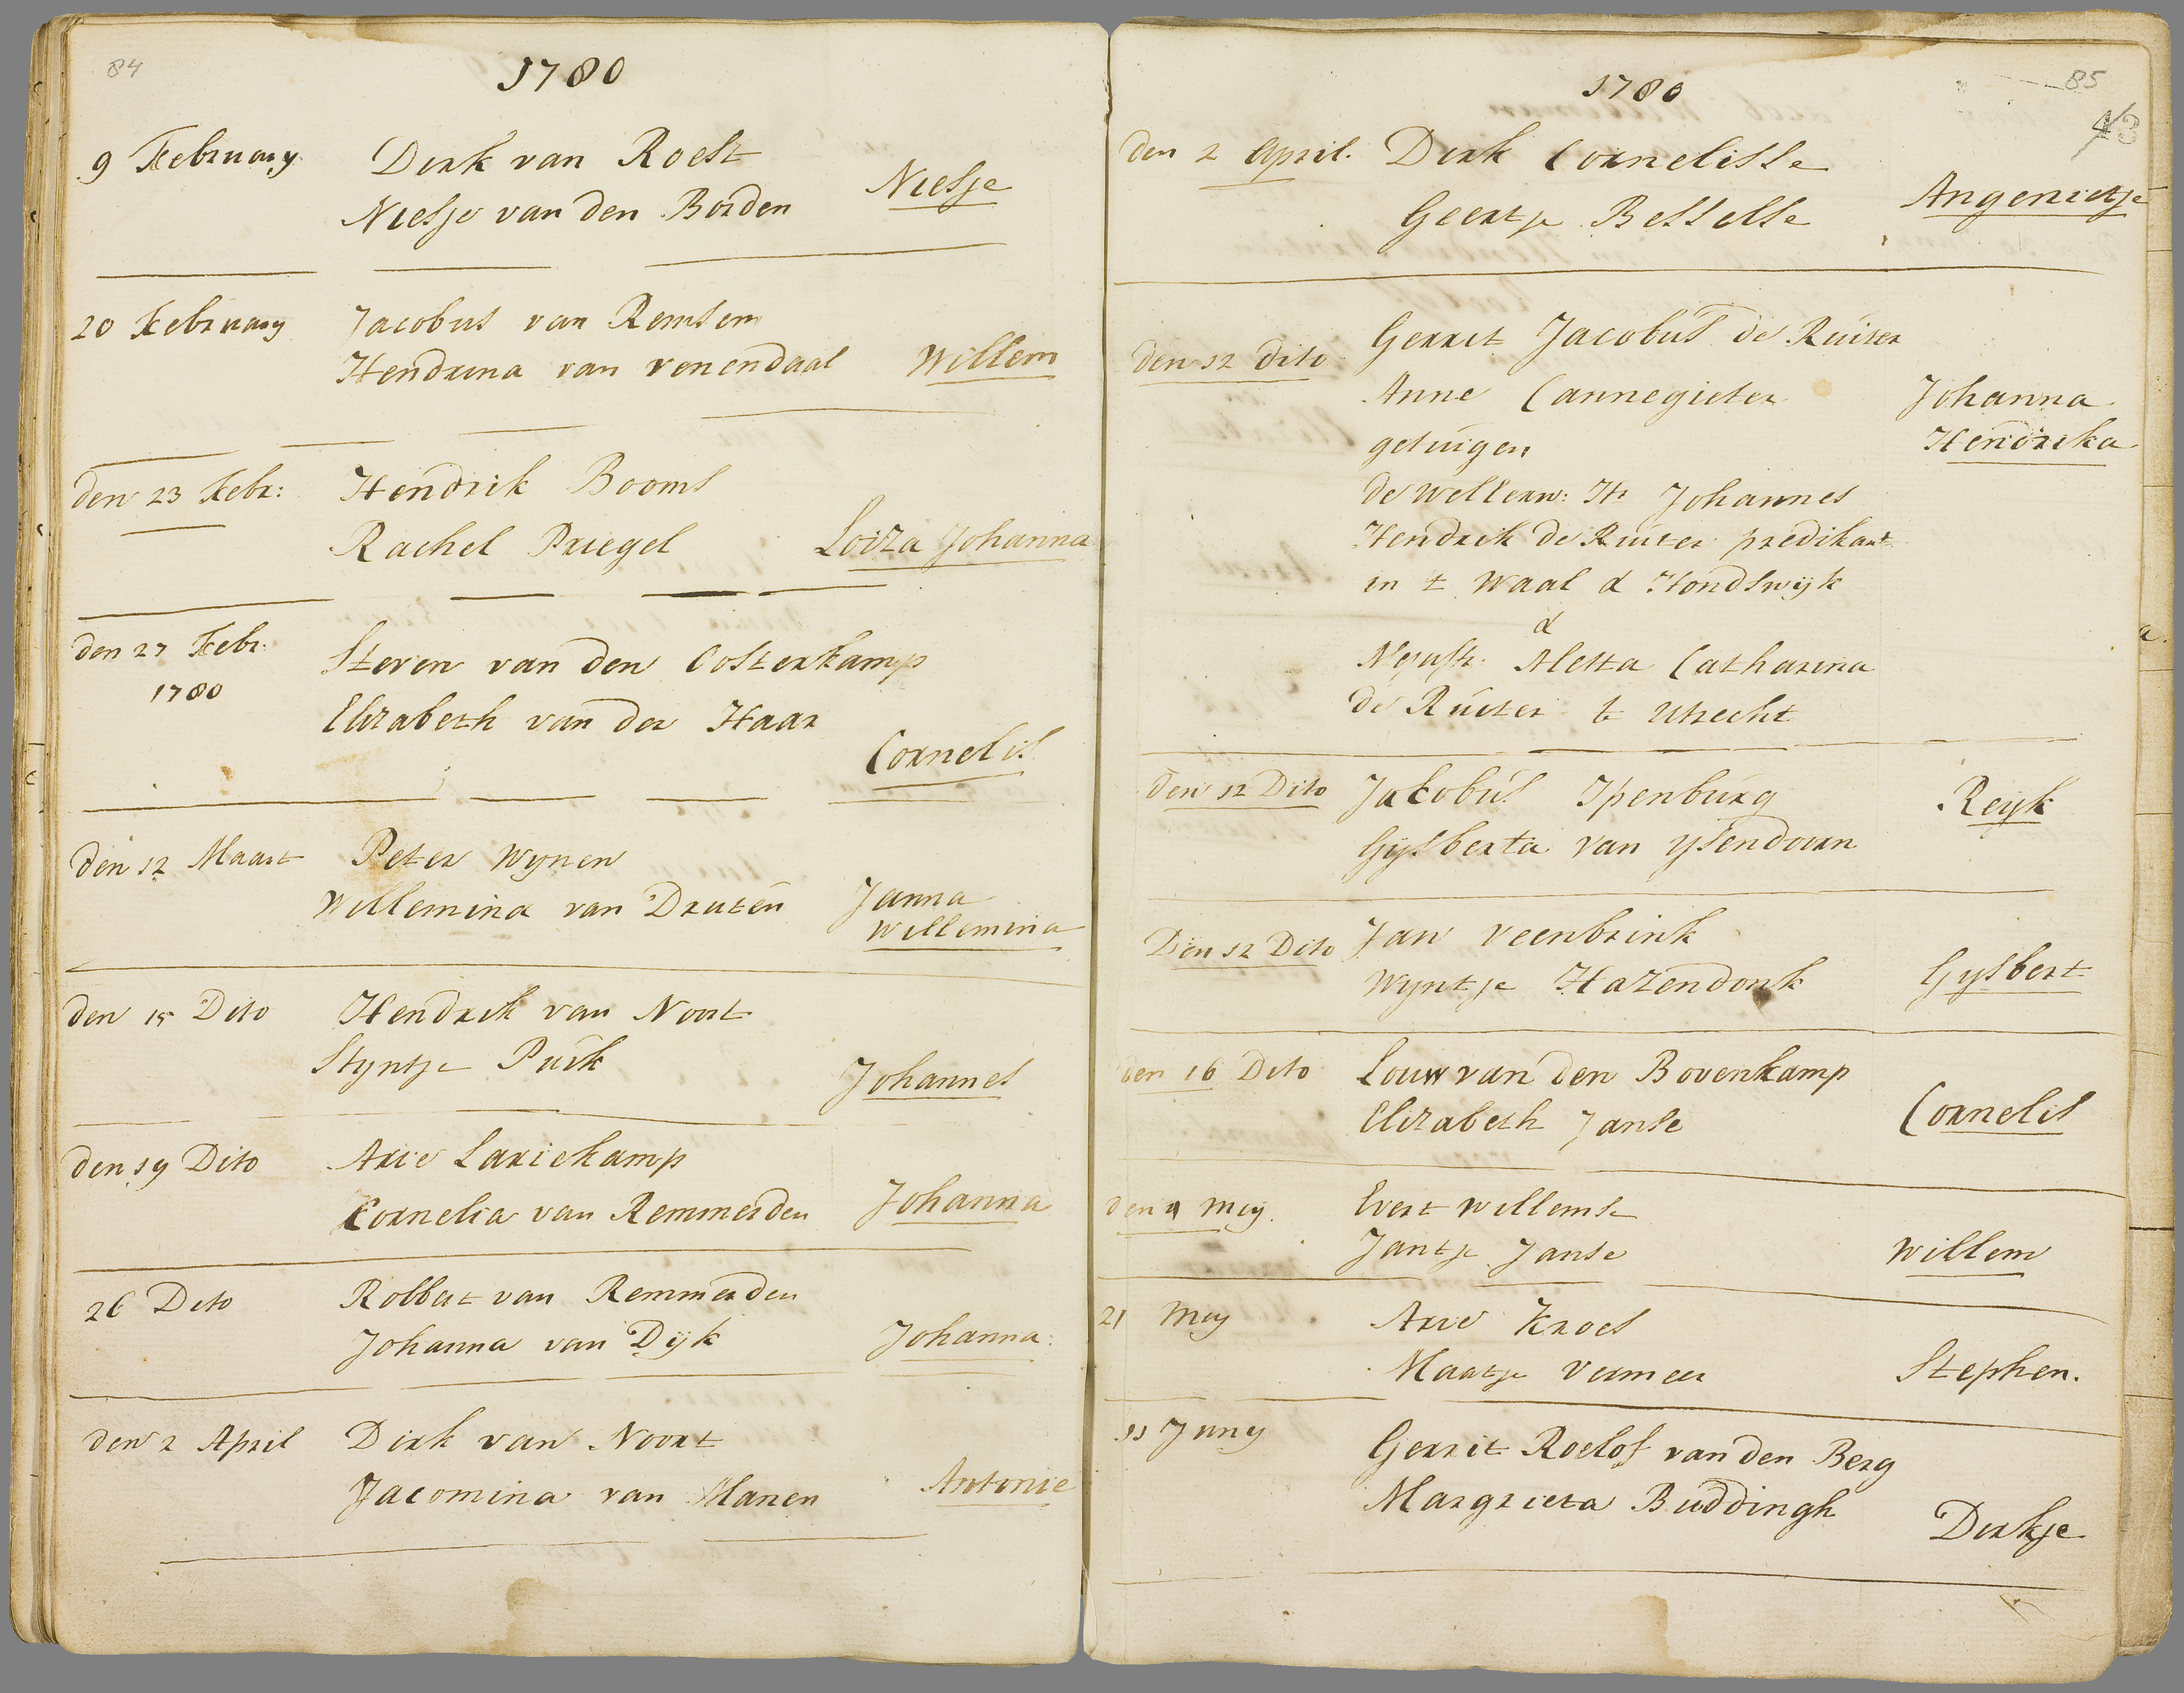 84
1780
9 February Dirk van Roest
Niesje van den Borden Niesje
20 February Jacobus van Remsem
Hendrina van venendaal Willem
den 23 Febr: Hendrik Booms
Rachel Priegel Loiza Johanna
den 27 Febr.
1780
Steven van den Oosterkamp
Elizabeth van der Haar
Cornelis
den 12 Maart Peter Wynen
Willemina van Druten Janna
Willemina
den 15 Dito Hendrik van Noort
Styntje Purk Johannes
den 19 Dito Arie Lariekamp
Cornelia van Remmerden Johanna
26 Dito Robbert van Remmerden
Johanna van Dijk Johanna
den 2 April Dirk van Noort
Jacomina van Manen Antonie
85
1780
43
den 2 April. Dirk Cornelisse
Geertje Besselse Angenietje
den 12 dito Gerrit Jacobus de Ruiter
Anne Cannegieter Johanna
getuigen Hendrika
de Wellerw: Hr Johannes
Hendrik de Ruiter predikant
in t Waal & Hondswijk
&
Aletta Catharina
de Ruiter te Utrecht
den 12 Dito Jacobus Ipenburg Reyk
Gijsberta van ysendoorn
Den 12 Dito Jan Veenbrink
Wyntje Hazendonk Gysbert
den 16 Dito Louw van den Bovenkamp
Elizabeth Janse Cornelis
den Mey. Evert Willemse
Jantje Janse Willem
21 Mey Arie Kroes
Maatje Vermeer Stephen.
11 Juny Gerrit Roelof van den Berg
Margrieta Buddingh Dirkje